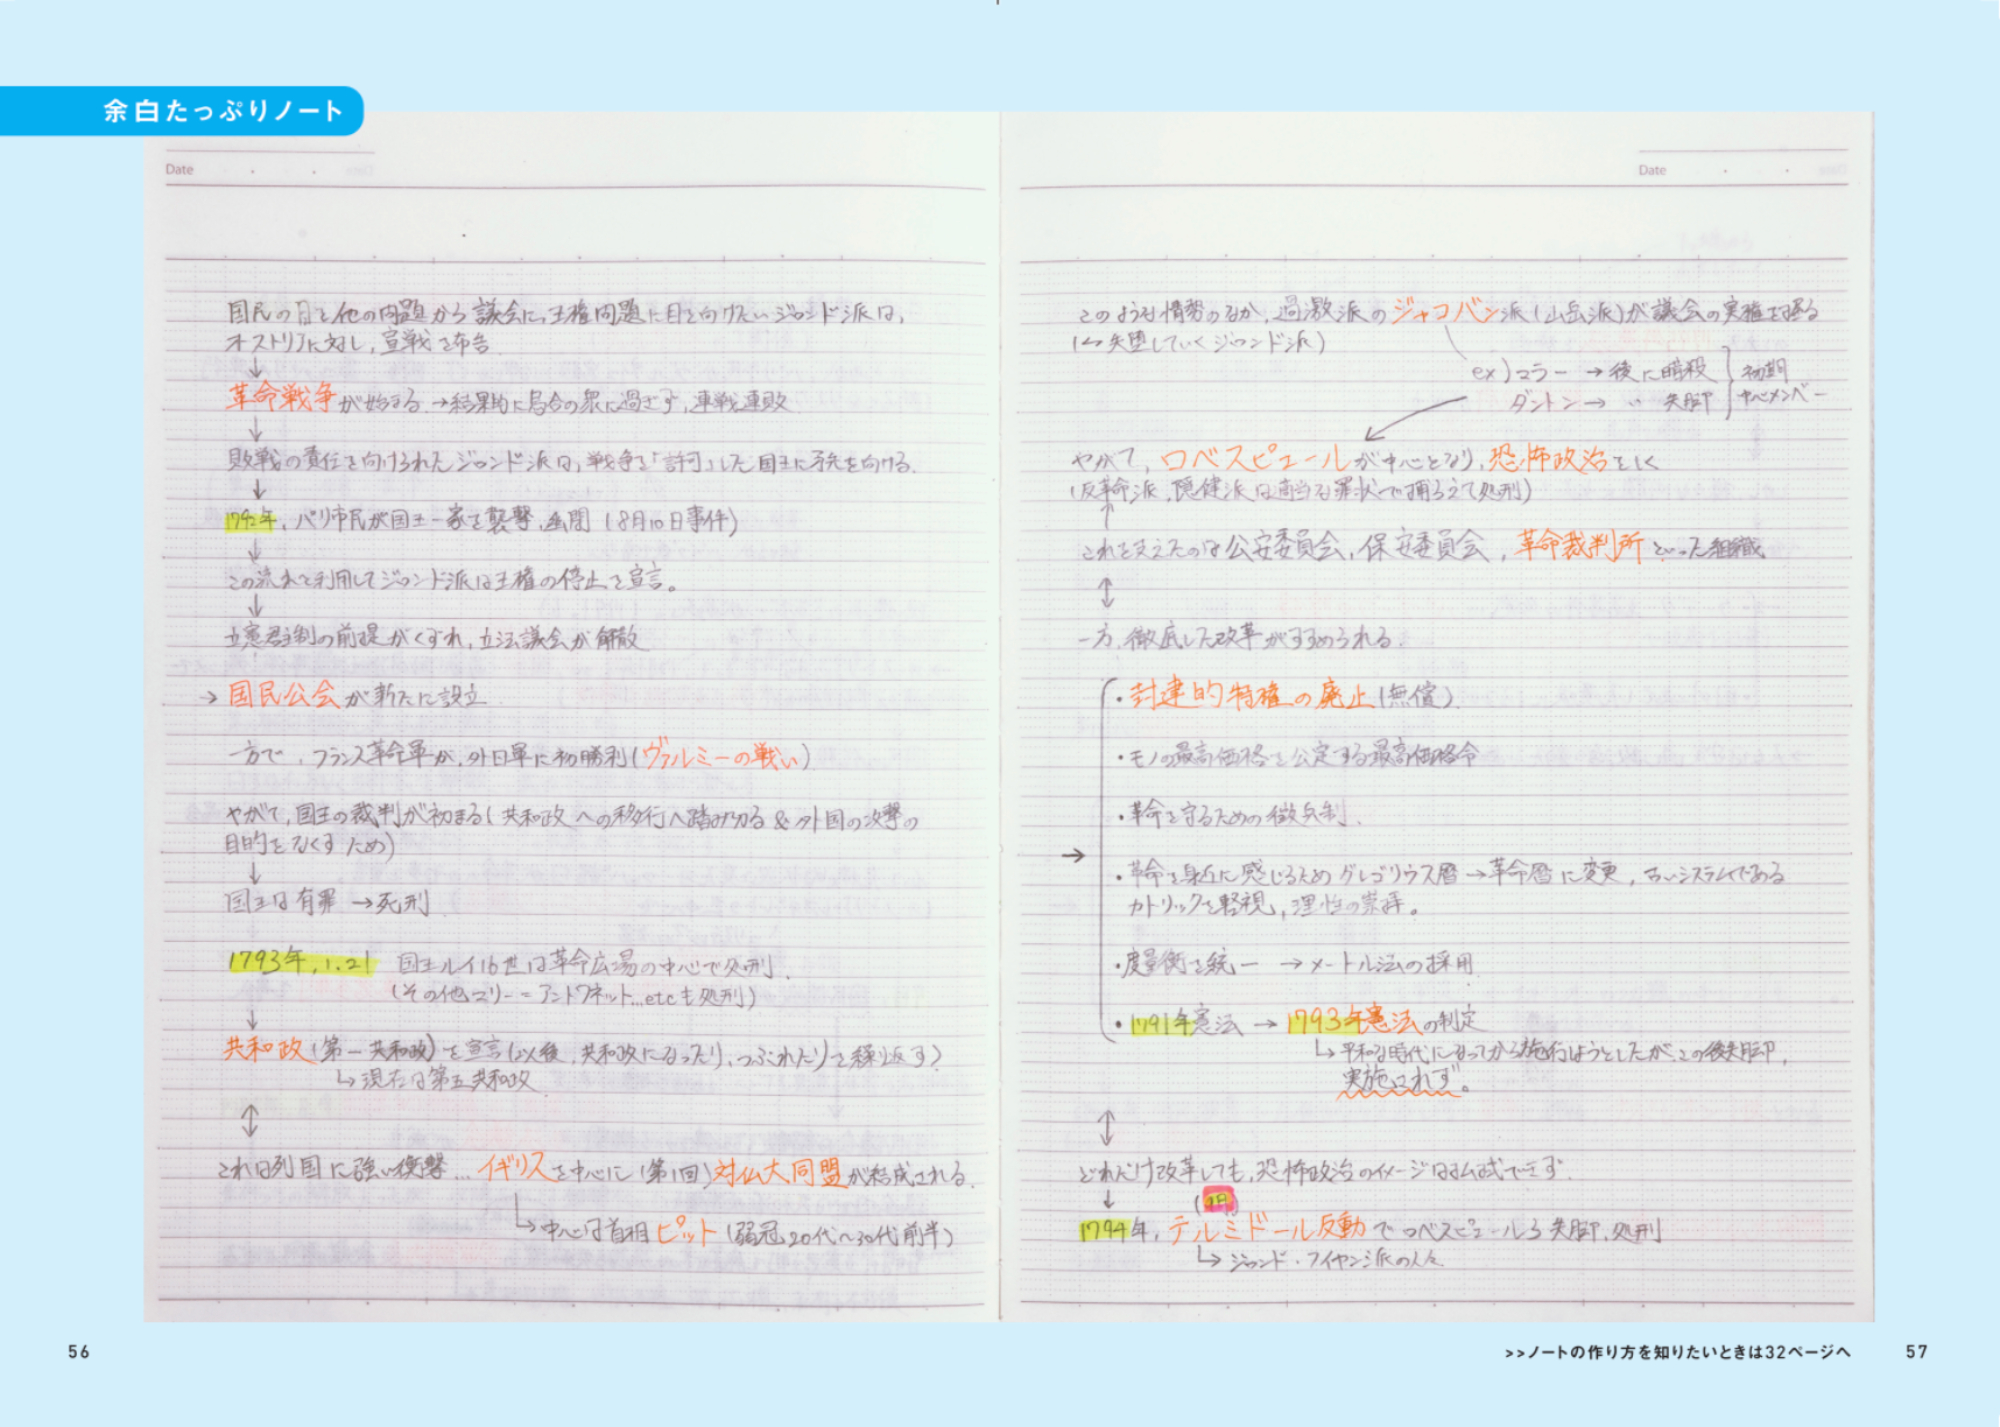 余白たっぷりノート
Date
国民の目を他の内題から議会に、王権問題に目を向けたいジロンド派は、
オストリアに対し、宣戦を布告
↓
革命戦争が始まる →結果的に烏合の衆に過ぎず、連戦連敗
↓
敗戦の責任を向けられたジロンド派は、戦争を「許可」した国王に矛先を向ける.
↓
1792年, パリ市民が国王一家を襲撃、幽閉 (8月10日事件)
↓
この流れを利用してジロンド派は王権の停止を宣言。
↓
立憲君主制の前提がくずれ、立法議会が解散
↓
→ 国民公会が新たに設立
一方で、フランス革命軍が、外国軍に初勝利(ヴァルミーの戦い)
やがて、国王の裁判が初まる(共和政への移行へ踏み切る & 外国の攻撃の
目的をなくすため)
↓
国王は有罪 →死刑
1793年, 1.21 国王ルイ16世は革命広場の中心で処刑.
(その他マリー=アントワネット...etcも処刑)
↓
共和政(第一共和政)を宣言(以後、共和政になったり、つぶれたりを繰り返す)
↳現在は第五共和政
↕
これは列国に強い衝撃... イギリスを中心に(第1回)対仏大同盟が結成される.
↳中心は首相ピット(弱冠20代〜30代前半)
56
Date
このような情勢のなか、過激派のジャコバン派(山岳派)が議会の実権を握る
(↔失墜していくジロンド派)
ex)マラー →後に暗殺
ダントン→ 〃 失脚
初期
中心メンバー
やがて、ロベスピエールが中心となり、恐怖政治をしく
(反革命派、穏健派は適当な罪状で捕らえて処刑)
↑
これを支えたのは公安委員会, 保安委員会, 革命裁判所といった組織
↕
一方、徹底した改革がすすめられる.
・封建的特権の廃止(無償)
・モノの最高価格を公定する最高価格令
・革命を守るための徴兵制.
→
・革命を身近に感じるためグレゴリウス暦→革命暦に変更, 古いシステムである
カトリックを軽視, 理性の崇拝。
・度量衡を統一 →メートル法の採用
・1791年憲法 → 1793年憲法の制定
↳平和な時代になってから施行しようとしたがこの後失脚,
実施されず。
↕
どれだけ改革しても、恐怖政治のイメージは払拭できず.
↓
1794年, テルミドール反動でロベスピエールら失脚、処刑
↳ジロンド・フイヤン派の人々
>>ノートの作り方を知りたいときは32ページへ
57